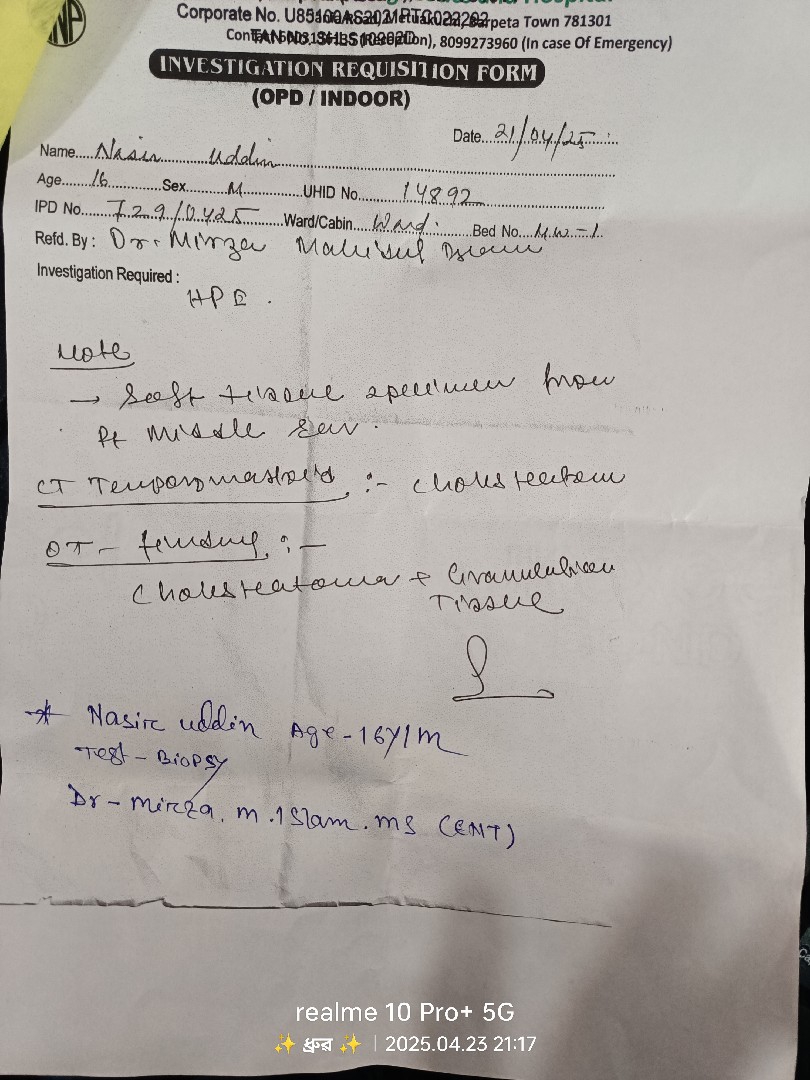 Corporate No. Barpeta Town 781301
8099273960 (In case Of Emergency)
NP
INVESTIGATION REQUISITION FORM
(OPD / INDOOR)
Date...21/04/25
Name....Nasir Uddin
Age......16 Sex.......M UHID No.....14892
IPD No....729/0425 Ward/Cabin...Ward. Bed No...M.W-1
Refd. By : Dr. Mirza
Investigation Required :
HPE.
Note
→ Soft tissue specimen from
Rt Middle Ear.
CT Temporomastoid :- Cholesteatom
OT- finding :-
Cholesteatoma + Granulation
Tissue
* Nasir uddin Age-16Y/M
Test - BIOPSY
Dr - Mirza. M. ISlam. MS (ENT)
realme 10 Pro+ 5G
✨ ধ্রুব ✨ | 2025.04.23 21:17